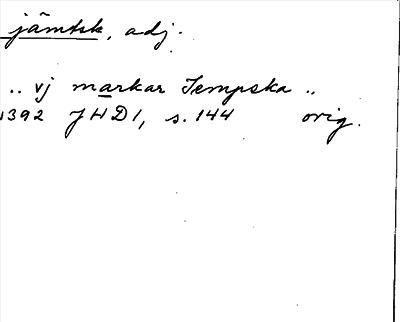 jämtsk, adj.
.. vj markar Jempska ..
1392 JHD1, s. 144 orig.